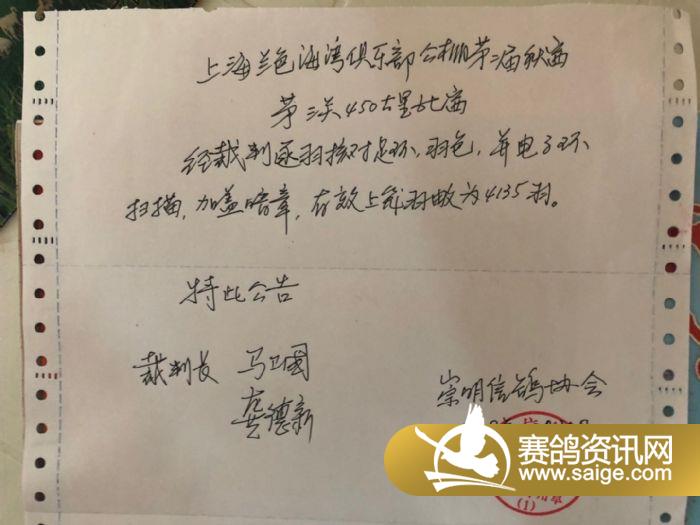 上海兰色海湾俱乐部公棚第二届秋赛
第三关450公里比赛
经裁判逐羽核对足环，羽色，并电子环
扫描，加盖暗章，有效上笼羽数为4135羽。
特此公告
裁判长 马卫国
龚德新
崇明信鸽协会
赛鸽资讯网
www.saige.com
(1)